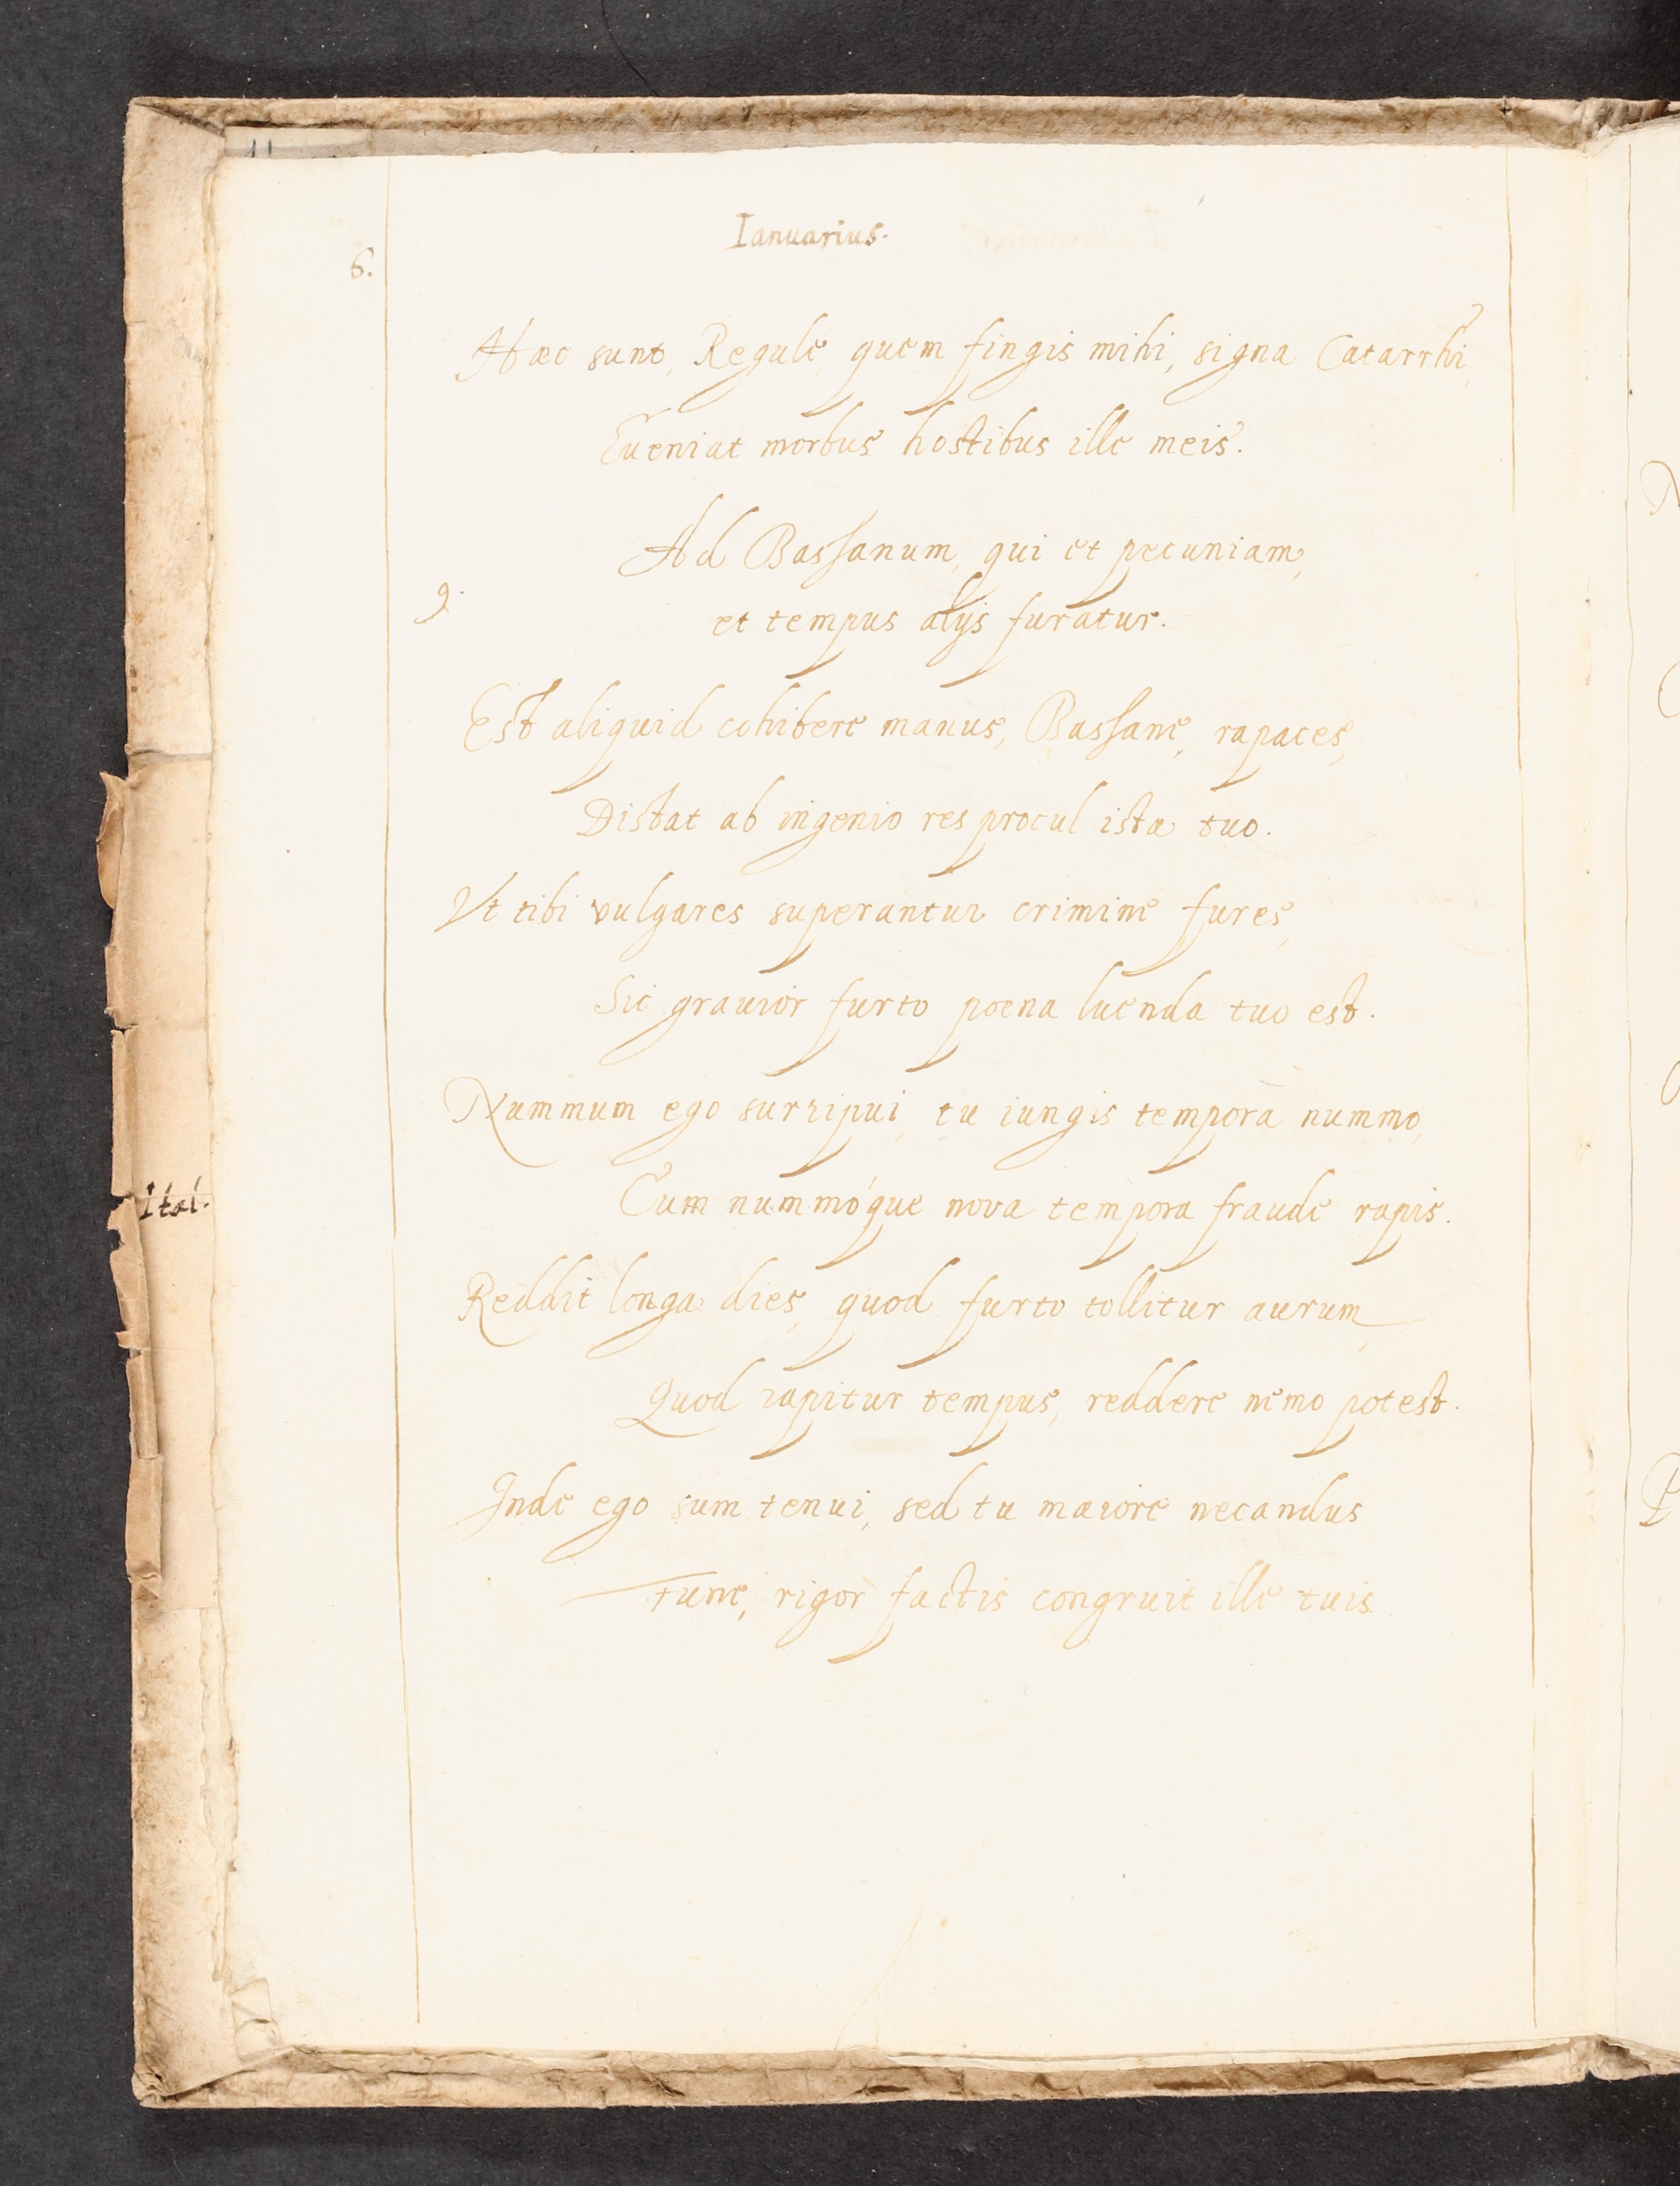 Ianuarius.
6.
Hæc sunt, Regule, quem fingis mihi, signa Catarrhi,
Eueniat morbus hostibus ille meis.
Ad Bassanum, qui et pecuniam,
9.
et tempus alijs furatur.
Est aliquid cohibere manus, Bassane, rapaces,
Distat ab ingenio res procul ista tuo.
Vt tibi vulgares superantur crimine fures,
Sic grauior furto poena luenda tuo est.
Nummum ego surripui, tu iungis tempora nummo,
Cum nummóque nova tempora fraude rapis.
Reddit longa dies, quod furto tollitur aurum,
Quod rapitur tempus, reddere nemo potest.
Inde ego sum tenui, sed tu maiore necandus
Fune, rigor factis congruit ille tuis.
Ital.